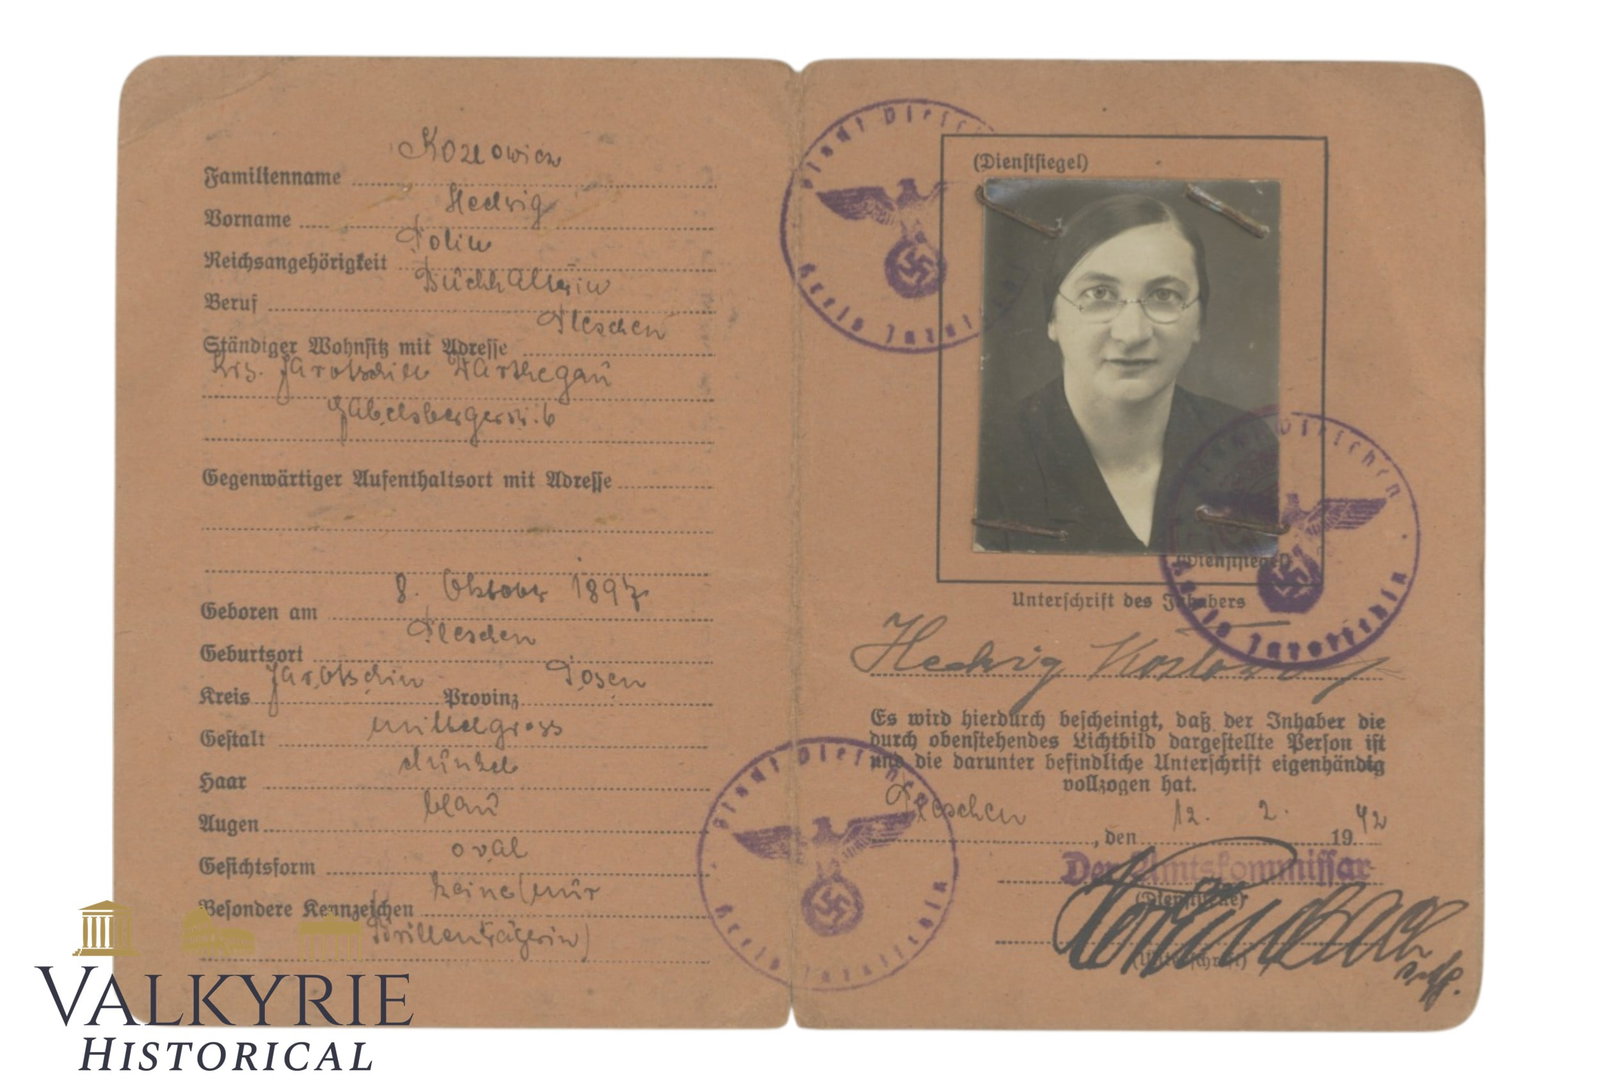 Familienname Kozlowicz
Vorname Hedwig
Reichsangehörigkeit Polin
Beruf Buchhalterin
Ständiger Wohnsitz mit Adresse Pleschen
Krs. Jarotschin Warthegau
Gabelsbergerstr. 6
Gegenwärtiger Aufenthaltsort mit Adresse
Geboren am 8. Oktober 1897
Geburtsort Pleschen
Kreis Jarotschin Provinz Posen
Gestalt mittelgross
Haar dunkel
Augen blau
Gesichtsform oval
Besondere Kennzeichen keine (nur
Brillenträgerin)
Stadt Pletschen
Kreis Jarotschin
(Dienstsiegel)
Stadt Pletschen
Kreis Jarotschin
(Dienstsiegel)
Unterschrift des Inhabers
Hedwig
Es wird hierdurch bescheinigt, daß der Inhaber die
durch obenstehendes Lichtbild dargestellte Person ist
und die darunter befindliche Unterschrift eigenhändig
vollzogen hat.
Pleschen, den 12. 2. 1942
Der Amtskommissar
(Dienststelle)
(Unterschrift)
Stadt Pletschen
Kreis Jarotschin
VALKYRIE
HISTORICAL